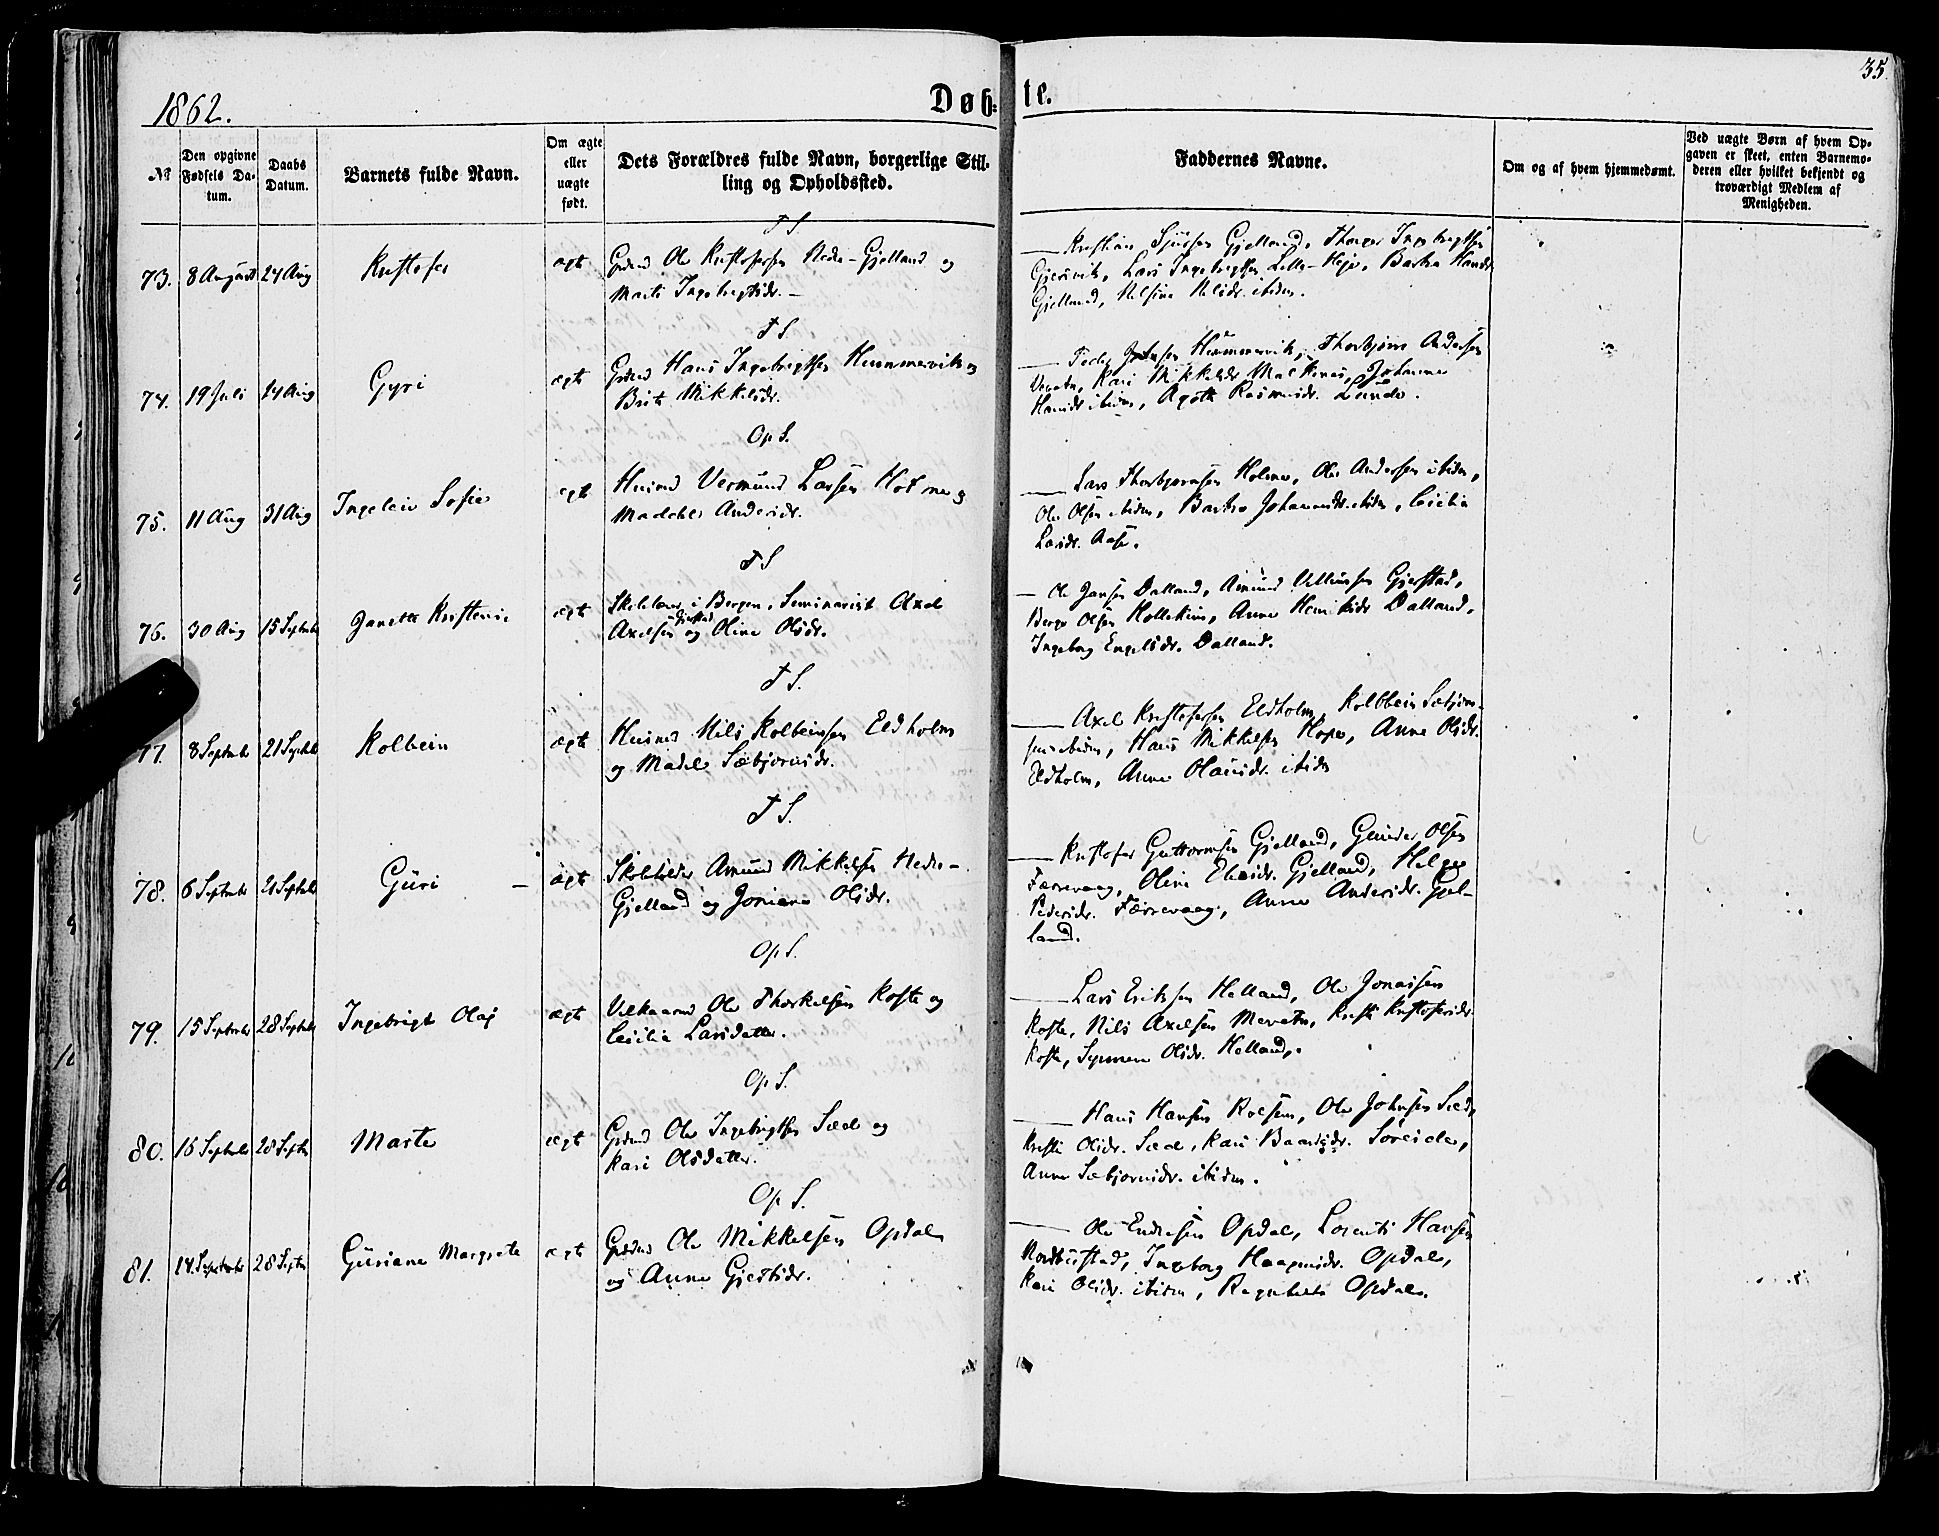 1862.
Døb-
te.
35
№
Den opgivne Fødsels Datum.
Daabs Datum.
Barnets fulde Navn.
Om ægte eller uægte født.
Dets Forældres fulde Navn, borgerlige Stilling og Opholdssted.
Faddernes Navne.
Om og af hvem hjemmedømt.
Ved uægte Børn af hvem Opgaven er skeet, enten Barnemoderen eller hvilket bekjendt og troværdigt Medlem af Menigheden.
T S
73. 8 August 24 Aug Kristofer ægt Grdmd Ole Kristofersen Nedre-Gjelland og
Marte Ingebrigtsdr. –
Kristian Sjursen Gjelland, Thorger Ingebrigtsen
Gjersvik, Lars Ingebrigtsen Lille-Høje, Barbra Hansdr
Gjelland, Nelsine Nilsdr. ibidm.
T S.
74. 19 Juli 14 Aug Gyri ægt Grdmd Hans Ingebrigtsen Hummervik og
Brite Mikkelsdr.
Peder Johnsen Hummervik, Thorbjørn Andersen
Vevatn, Kari Mikkelsdr Malkenes, Johanne
Hansdr ibidm, Agothe Rasmusdr. Lunde.
Op S.
75. 11 Aug 31 Aug Ingeleiv Sofie ægt Husmd Vermund Larsen Holme og
Madele Andersdr.
Lars Thorbjørnsen Holme, Ole Andersen ibidm,
Ole Olsen ibidm, Barbro Johannesdr. ibidm, Cecilia
Larsdr. Aase.
T S
76. 30 Aug 15 Septembr Janette Kristense ægt Skolelærer i Bergen, Seminarist Axel
Axelsen Gjerstad og Oline Olsdr.
Ole Jansen Dalland, Amund Villumsen Gjerstad,
Berge Olsen Hollekim, Anne Henriksdr Dalland,
Ingeborg Engelsdr. Dalland.
T S.
77. 8 Septembr 21 Septbr Kolbein ægte Husmd Nils Kolbeinsen Eldholm
og Madel Sæbjørnsdr.
Axel Kristofersen Eldholm, Kolbbein Sæbjørn-
sen ibidm, Hans Mikkelsen Hope, Anne Olsdr.
Eldholm, Anne Olausdr. ibidm
T S.
78. 6 Septembr 21 Septbr Guri – ægt Skoleholder Amund Mikkelsen Nedre-
Gjelland og Joniane Olsdr.
Kristofer Guttormsen Gjelland, Gunder Olsen
Færrevaag, Oline Eliasdr. Gjelland, Helge
Pedersdr. Færrevaag, Anne Andersdr. Gjel-
land.
Op S.
79. 15 Septembr 28 Septbr Ingebrigt Olaj ægt Vilkaarmd Ole Thorkelsen Koste og
Cecilia Larsdatter.
Lars Eriksen Helland, Ole Jonassen
Koste, Nils Axelsen Mevatn, Kristi Kristofersdr.
Koste, Synneve Olsdr. Helland.
Op S.
80. 16 Septembr 28 Septbr Marte ægt Grdmd Ole Ingebrigtsen Sæd og
Kari Olsdatter.
Hans Hansen Rolsem, Ole Johnsen Sæd,
Kristi Olsdr. Sæd, Kari Baardsdr. Søreide,
Anne Sæbjørnsdr. ibidm.
Op S.
81. 14 Septembr 28 Septbr Guriane Margrete ægt Grdmd Ole Mikkelsen Opdal
og Anne Gjestsdr.
Ole Endresen Opdal, Lorents Hansen
Nordbustad, Ingeborg Haagensdr. Opdal,
Kari Olsdr. ibidm, Opdal.